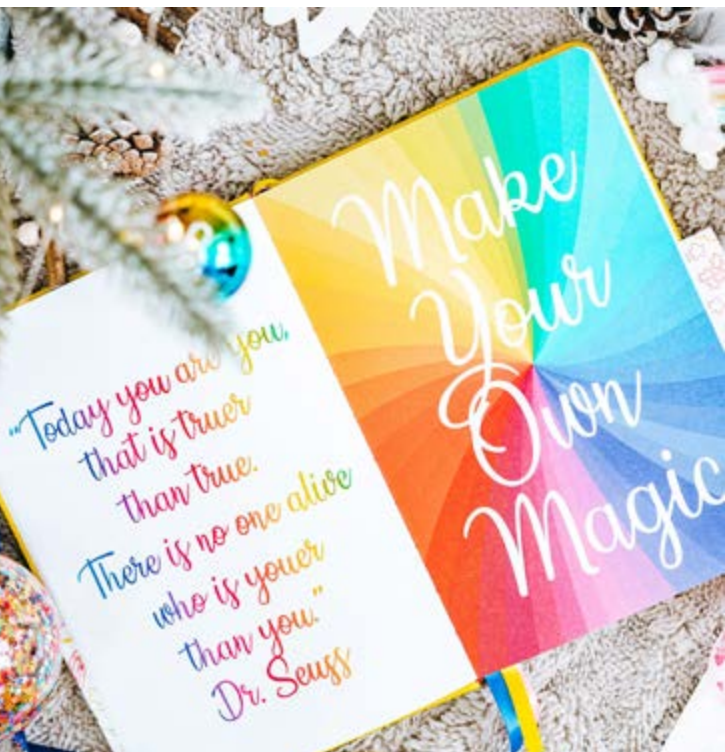 "Today you are you,
that is truer
than true.
There is no one alive
who is youer
than you."
Dr. Seuss
Make
Your
Own
Magic